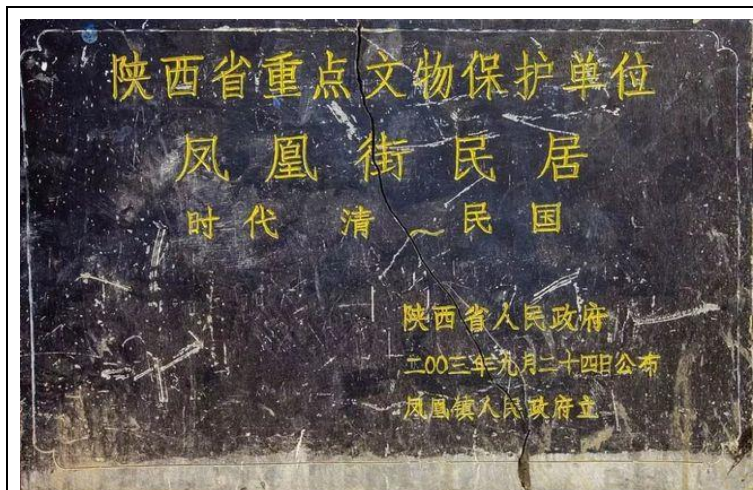 陕西省重点文物保护单位
凤凰街民居
时代 清～民国
陕西省人民政府
二00三年九月二十四日公布
凤凰镇人民政府立